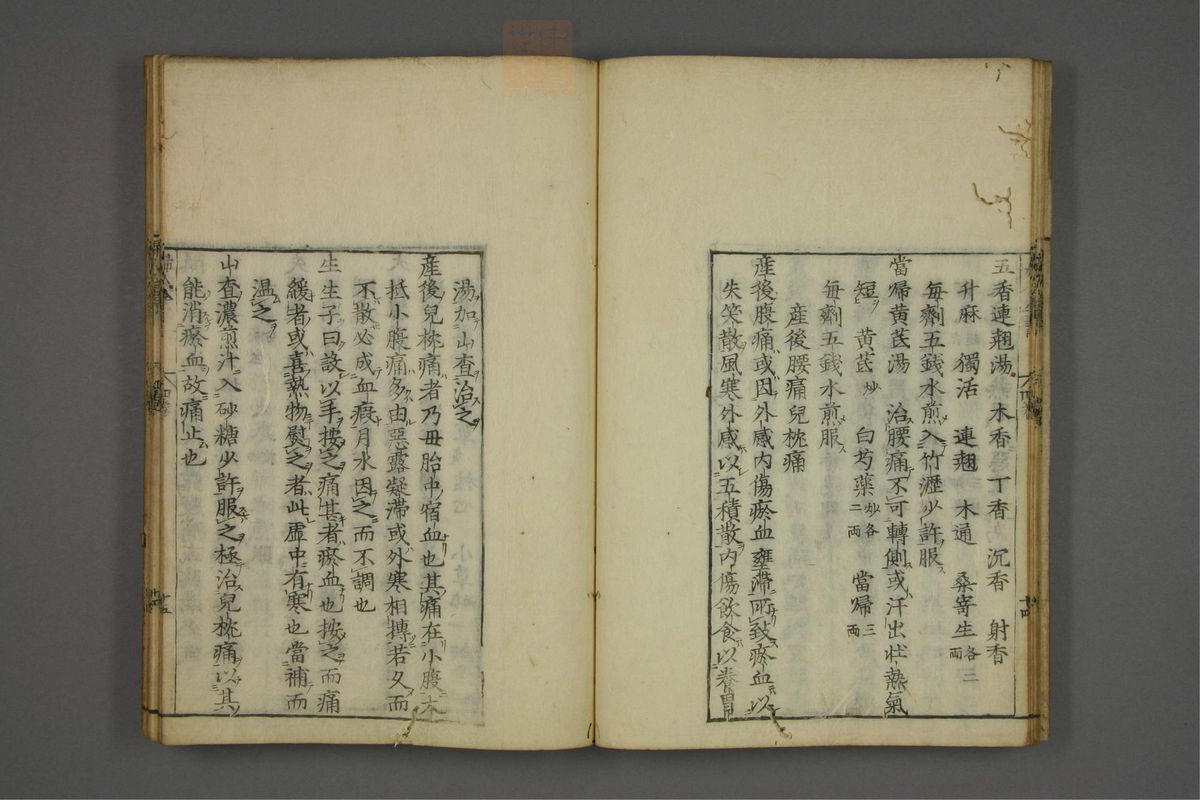 五香連翹湯　木香　丁香　沉香　射香
升麻　獨活　連翹　木通　桑寄生各二両
毎劑五錢水煎入竹瀝少許服
當帰黄芪湯　治腰痛不可轉側或汗出壮熱氣
短　黄芪炒　白芍藥炒各二両　當帰三両
毎劑五錢水煎服
産後腰痛兒枕痛
産後腹痛或因外感内傷瘀血壅滞所致瘀血以
失笑散風寒外感以五積散内傷飲食以養胃
湯加山査治之
産後兒枕痛者乃毋胎中宿血也其痛在小腹大
抵小腹痛多由惡露凝滞或外寒相摶若久而
不散必成血瘕月水因之而不調也
生生子曰診以手按之痛甚者瘀血也按之而痛
緩者或喜熱物熨之者此虚中有寒也當補而
温之
山査濃煎汁入砂糖少許服之極治兒枕痛以其
能消瘀血故痛止也